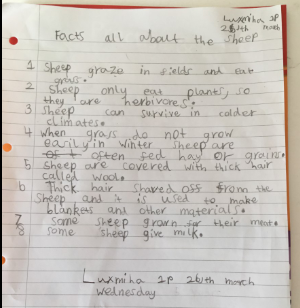 Luxmiha 1P
26th march
Facts all about the sheep
1 Sheep graze in fields and eat
grass.
2 Sheep only eat plants, so
they are herbivores.
3 Sheep can survive in colder
climates.
4 When grass do not grow
easily in winter sheep are
often fed hay or grains.
5 Sheep are covered with thick hair
called wool.
6 Thick hair shaved off from the
sheep and it is used to make
blankets and other materials.
7 Some sheep grown for their meat.
8 Some sheep give milk.
Luxmiha 1P 26th march
Wednesday